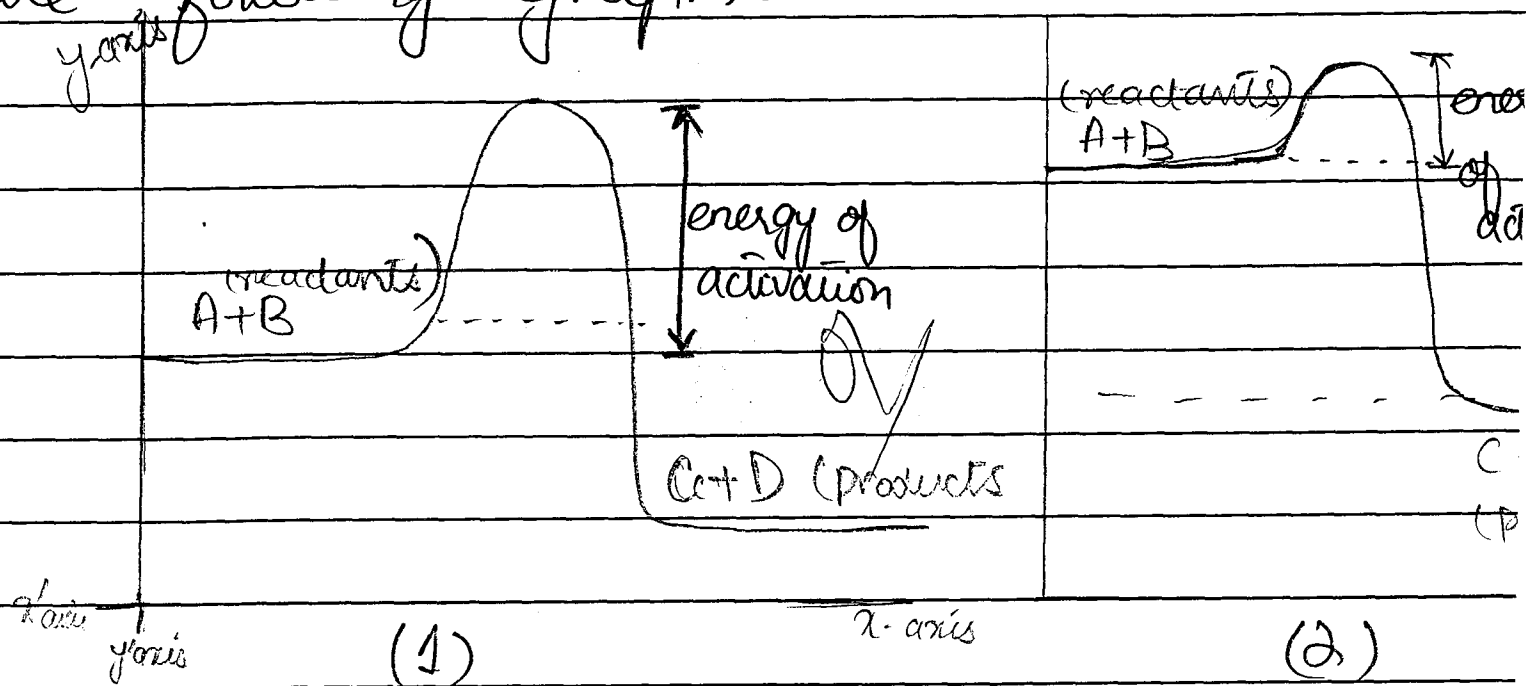 y axis
(reactants)
A+B
energy of
activation
C+D (products
x' axis
y' axis
x- axis
(1)
(reactants)
A+B
ener
of
act
C
(p
(2)